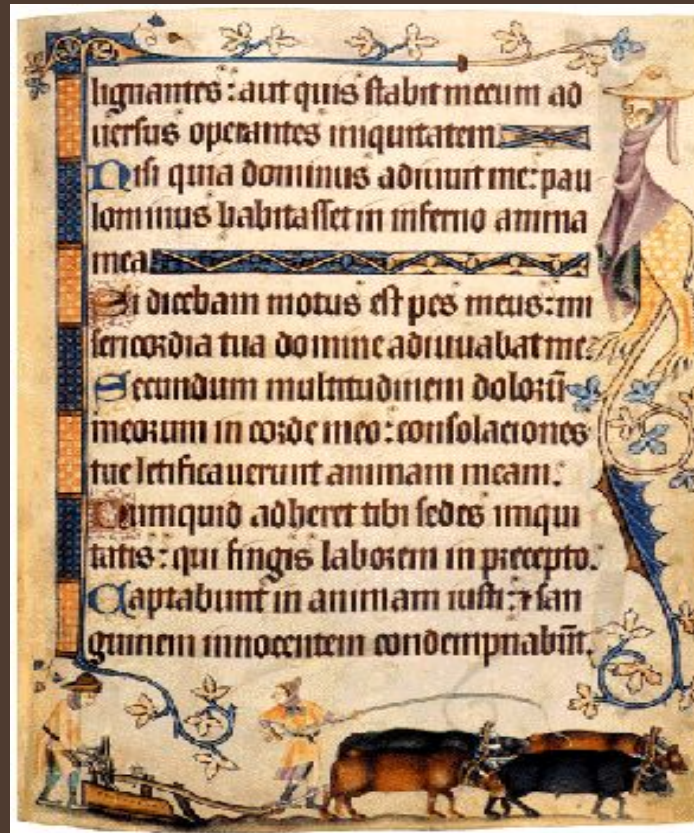 lignantes: aut quis stabit mecum ad
uersus operantes iniquitatem.
Nisi quia dominus adiuuit me: pau
lominus habitasset in inferno anima
mea.
Si dicebam motus est pes meus: mi
sericordia tua domine adiuuabat me.
Secundum multitudinem dolorū
meorum in corde meo: consolaciones
tue letificauerunt animam meam.
Numquid adheret tibi sedes iniqui
tatis: qui fingis laborem in precepto.
Captabunt in animam iusti: ⁊ san
guinem innocentem condempnabūt.